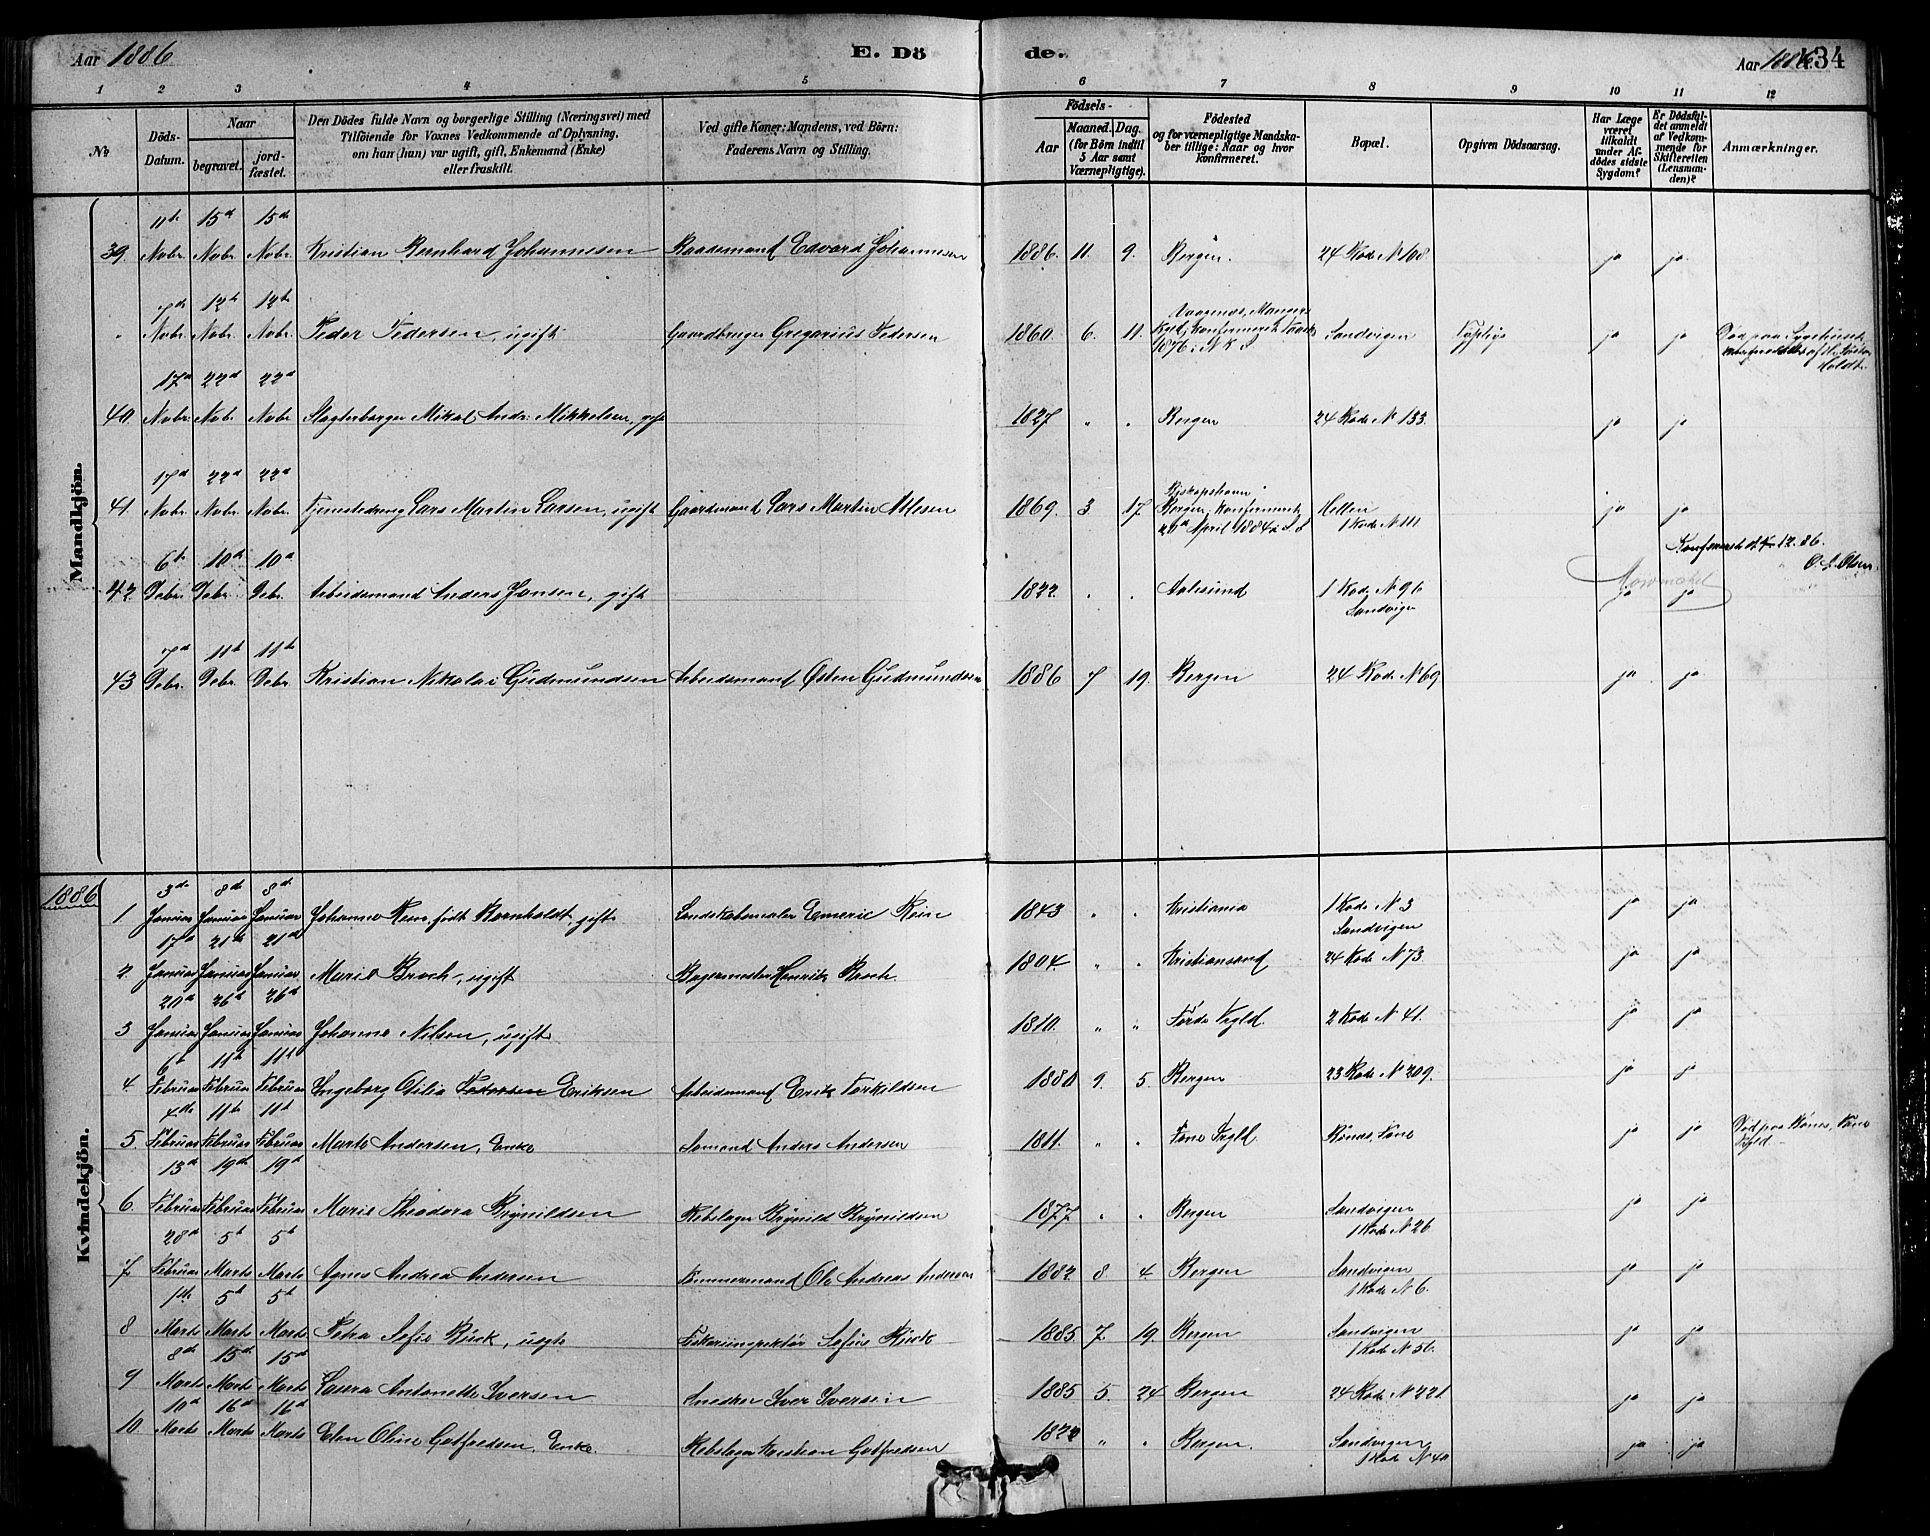 Aar 1886 E. Döde. Aar 1886 134
1 2 3 4 5 6 7 8 9 10 11 12
No
Döds-Datum.
Naar
begravet. jord-fæstet.
Den Dödes fulde Navn og borgerlige Stilling (Næringsvei) med
Tilföiende for Voxnes Vedkommende af Oplysning,
om han (hun) var ugift, gift, Enkemand (Enke)
eller fraskilt.
Ved gifte Koner: Mandens, ved Börn:
Faderens Navn og Stilling.
Födsels-
Aar Maaned. Dag.
(for Börn indtil
5 Aar samt
Værnepligtige).
Födested
og for værnepligtige Mandska-
ber tillige: Naar og hvor
konfirmeret.
Bopæl.
Opgiven Dödsaarsag.
Har Læge
været
tilkaldt
under Af-
dödes sidste
Sygdom?
Er Dödsfal-
det anmeldt
af Vedkom-
mende for
Skifteretten
(Lensman-
den)?
Anmærkninger.
Mandkjön.
11te 15de 15de
39. Nobr. Nobr. Nobr. Kristian Bernhard Johannesen Edvard Johannesen 1886. 11. 9. Bergen. 24 Rode N 108 ja ja
7de 12te 12te
" Nobr. Nobr. Nobr. Peder Pedersen, ugift Gaardbruger Gregorius Pedersen 1860. 6. 11. 1876 i N K Sandvigen ja ja Död paa Sygehuset
17de 22de 22de
40. Nobr. Nobr. Nobr. Slagterborger Mikal Andr: Mikkelsen, gift 1827 " " Bergen 24 Rode N 133. ja ja
17de 22de 22de
41. Nobr. Nobr. Nobr. Tjenestedreng Lars Martin Larsen, ugift Gaardmand Lars Martin 1869. 3 17. Bergen, Konfirmeret April 1884 Hellen
1 Rode N 111 ja ja
Konfereret 12.86.
O. L. Olsen.
6te 10de 10de
42. Debr. Debr. Debr. Arbeidsmand Anders Jansen, gift 1822. " " Aalesund 1 Rode N 96
Sandvigen ja ja
7de 11te 11te
43 Debr. Debr. Debr. Kristian Nikolai Gudmundsen Arbeidsmand Østen Gudmundsen 1886 7 19. Bergen 24 Rode N 69 ja ja
1886
Kvindekjön.
3de 8de 8de
1 Januar Januar Januar Johanne Rein, født Bornholdt, gift Landskabsmaler Emeric Rein 1843 " " Kristiania 1 Rode N 3
Sandvigen ja ja
17de 21de 21de
2 Januar Januar Januar Marie Broch, ugift Bagermester Henrik Broch. 1804. " " Kristiansand 24 Rode N 73 ja ja
20de 26de 26de
3 Januar Januar Januar Johanne Nilsen, ugift 1810. " " Førde Prgld. 2 Rode N 41. ja ja
6te 11te 11te
4. Februar Februar Februar Ingeborg Otilia Eriksen Arbeidsmand Erik Torkildsen 1880 9. 5. Bergen 23 Rode N 209. ja ja
4de 11te 11te
5. Februar Februar Februar Marte Andersen, Enke Sømand Anders Andersen 1811. " " Fane Prgld. Bönes, Fane ja ja Död paa Bönes, Fane
Prgld.
13de 19de 19de
6. Februar Februar Februar Marie Theodora Brynildsen Rebslager Brynild Brynildsen 1877 " " Bergen Sandvigen
1 Rode N 26 ja ja
28de 5te 5te
7. Februar Marts Marts Agnes Andrea Andersen Tømmermand Ole Andreas Andersen 1882 8 4 Bergen Sandvigen
1 Rode N 6. ja ja
1ste 5te 5te
8 Marts Marts Marts Petra Sofie Buck, ugift Fiskeriinspektør Sofus Buck 1885. 7 19. Bergen Sandvigen
1 Rode N 56. ja ja
8de 15de 15de
9 Marts Marts Marts Laura Antonette Iversen Snedker Iver Iversen 1885 5. 24 Bergen 24 Rode N 221 ja ja
10de 16de 16de
10. Marts Marts Marts Elen Oline Gotfredsen, Enke Rebslager Kristian Gotfredsen 1820 " " Bergen. Sandvigen
1 Rode N 40 ja ja